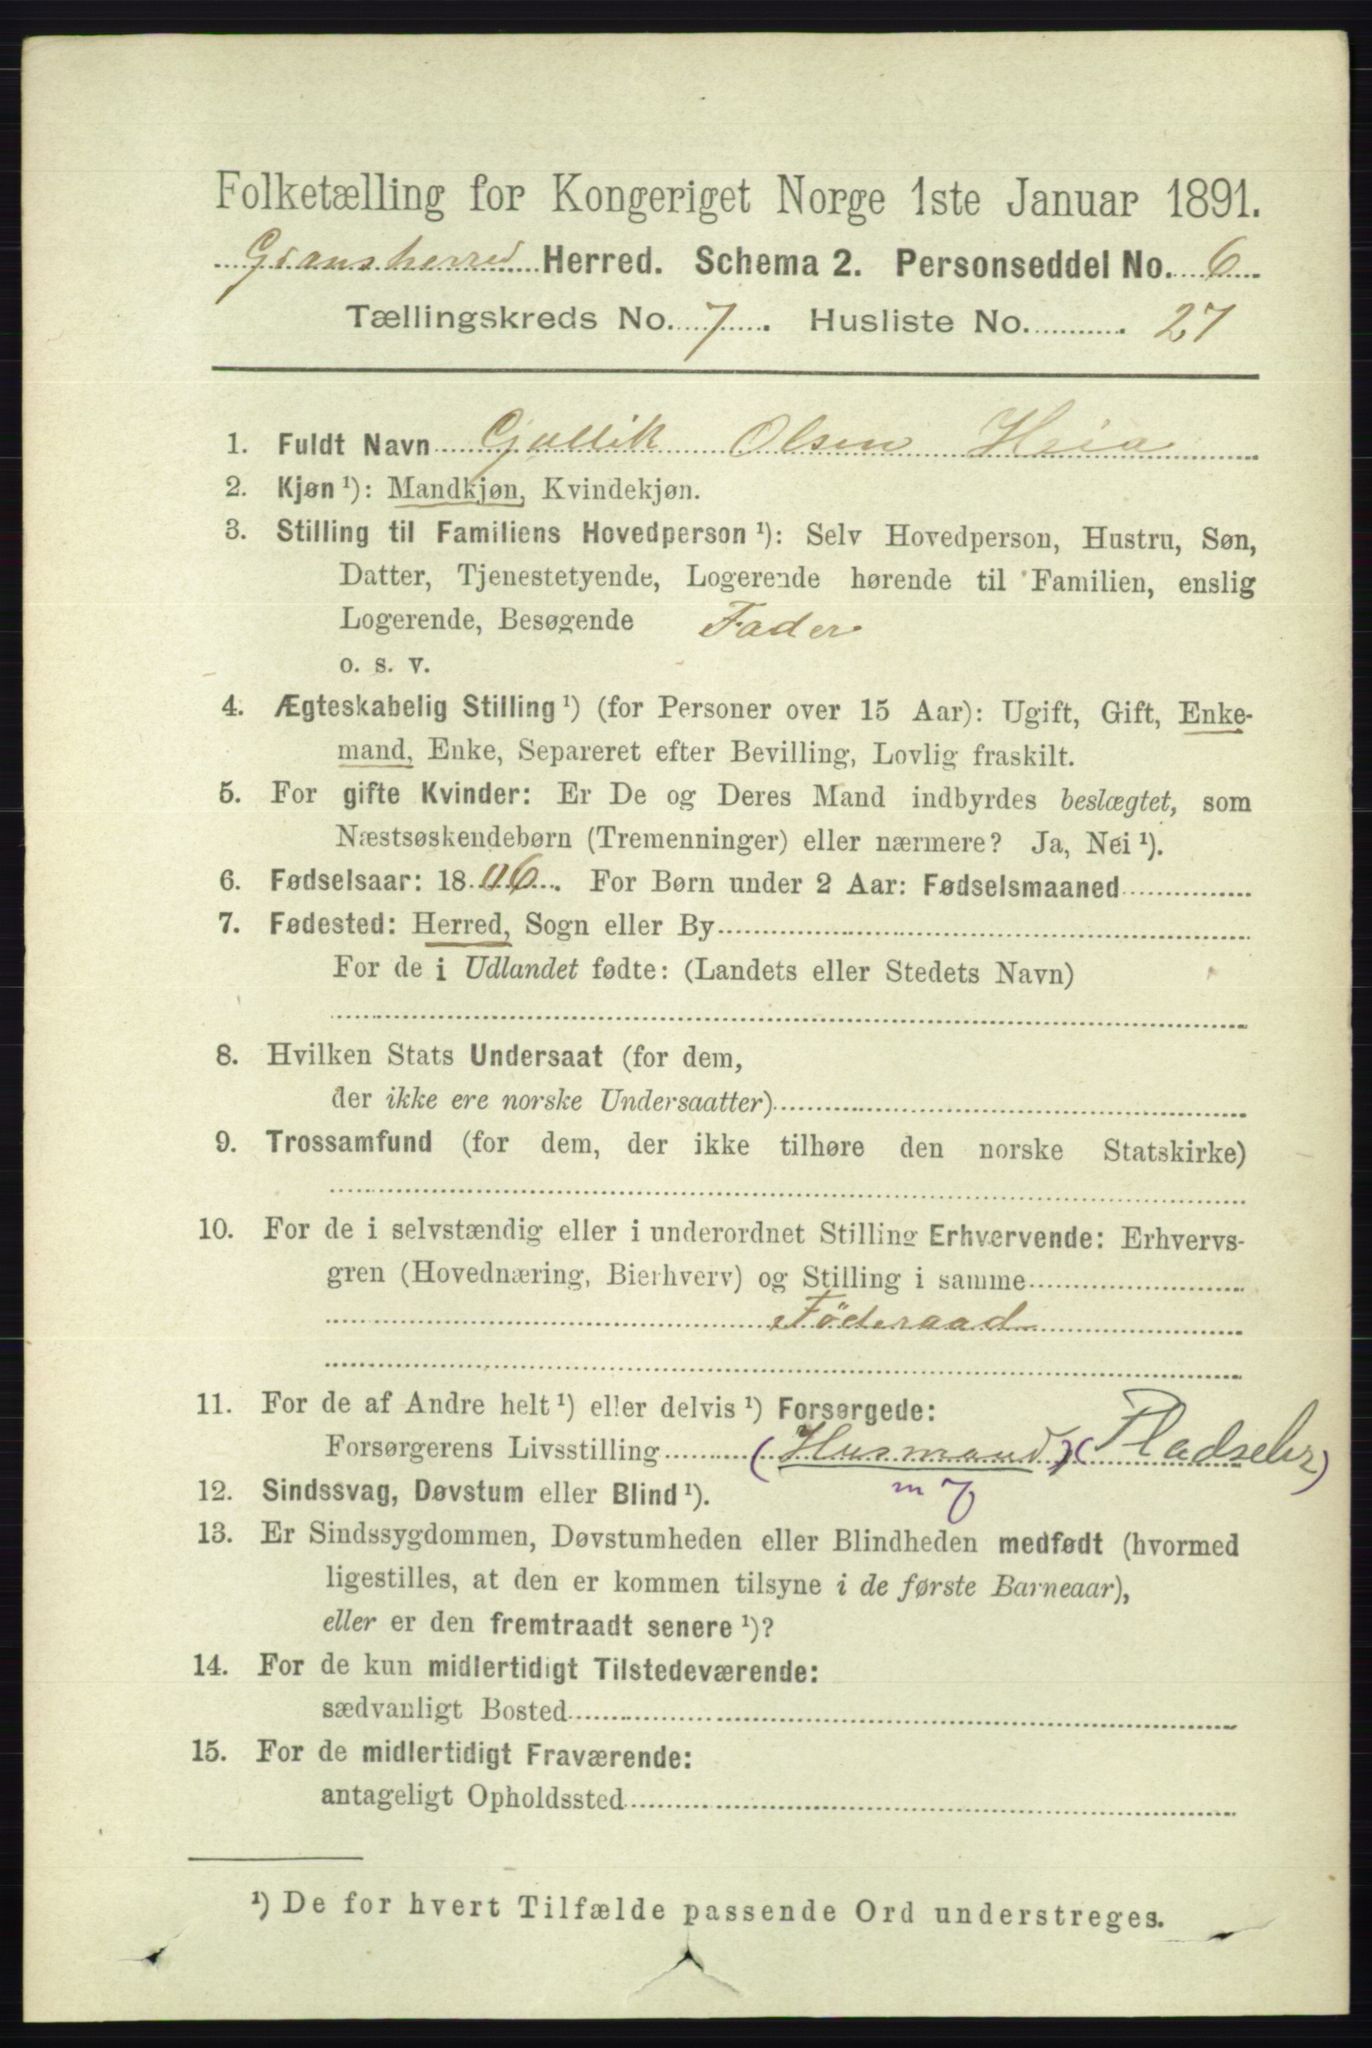 Folketælling for Kongeriget Norge 1ste Januar 1891.
Gransherred Herred. Schema 2. Personseddel No. 6
Tællingskreds No. 7. Husliste No. 27
1. Fuldt Navn Gjullik Olsen Heia
2. Kjøn ¹): Mandkjøn, Kvindekjøn.
3. Stilling til Familiens Hovedperson ¹): Selv Hovedperson, Hustru, Søn,
Datter, Tjenestetyende, Logerende hørende til Familien, enslig
Logerende, Besøgende Fader
o. s. v.
4. Ægteskabelig Stilling ¹) (for Personer over 15 Aar): Ugift, Gift, Enke-
mand, Enke, Separeret efter Bevilling, Lovlig fraskilt.
5. For gifte Kvinder: Er De og Deres Mand indbyrdes beslægtet, som
Næstsøskendebørn (Tremenninger) eller nærmere? Ja, Nei ¹).
6. Fødselsaar: 1806. For Børn under 2 Aar: Fødselsmaaned
7. Fødested: Herred, Sogn eller By
For de i Udlandet fødte: (Landets eller Stedets Navn)
8. Hvilken Stats Undersaat (for dem,
der ikke ere norske Undersaatter)
9. Trossamfund (for dem, der ikke tilhøre den norske Statskirke)
10. For de i selvstændig eller i underordnet Stilling Erhvervende: Erhvervs-
gren (Hovednæring, Bierhverv) og Stilling i samme
Föderaad
11. For de af Andre helt ¹) eller delvis ¹) Forsørgede:
Forsørgerens Livsstilling (Husmand) (Pladseier)
m J
12. Sindssvag, Døvstum eller Blind ¹).
13. Er Sindssygdommen, Døvstumheden eller Blindheden medfødt (hvormed
ligestilles, at den er kommen tilsyne i de første Barneaar),
eller er den fremtraadt senere ¹)?
14. For de kun midlertidigt Tilstedeværende:
sædvanligt Bosted
15. For de midlertidigt Fraværende:
antageligt Opholdssted
¹) De for hvert Tilfælde passende Ord understreges.